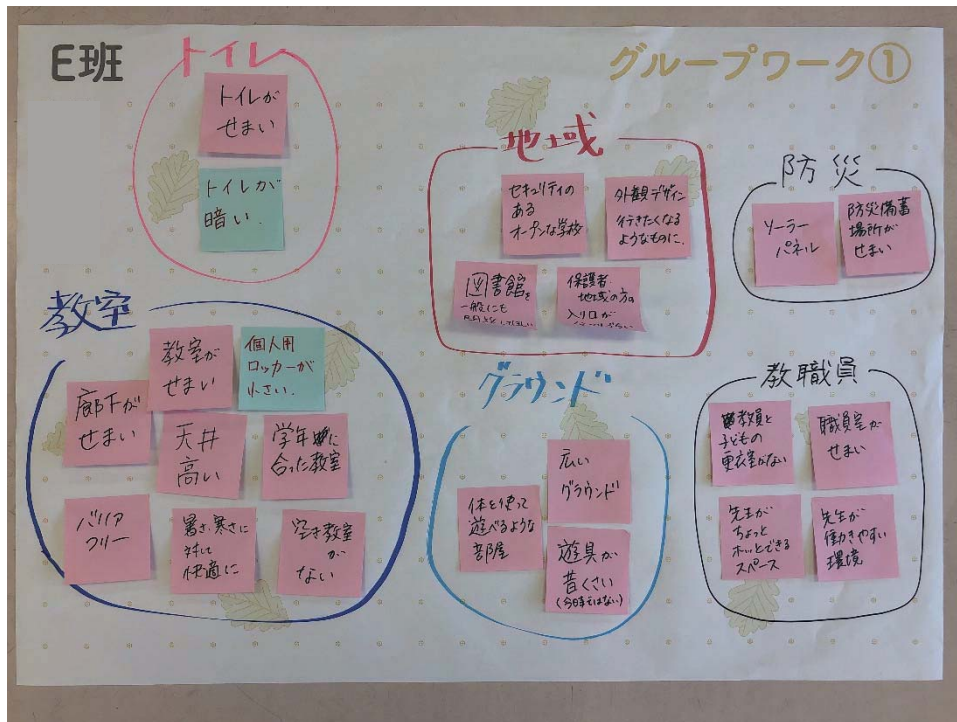 E班
グループワーク①
トイレ
トイレが
せまい
トイレが
暗い.
地域
セキュリティの
ある
オープンな学校
外観デザイン
行きたくなる
ようなものに.
図書館を
一般にも
保護者
地域の方の
入り口が
防災
ソーラー
パネル
防災備蓄
場所が
せまい
教室
教室が
せまい
個人用
ロッカーが
小さい.
廊下が
せまい
天井
高い
学年に
合った教室
バリア
フリー
暑さ、寒さに
対して
快適に
空き教室
が
ない
グラウンド
広い
グラウンド
体を使って
遊べるような
部屋
遊具が
昔くさい
(今時ではない)
教職員
教員と
子どもの
更衣室がない
職員室が
せまい
先生が
ちょっと
ホッとできる
スペース
先生が
働きやすい
環境